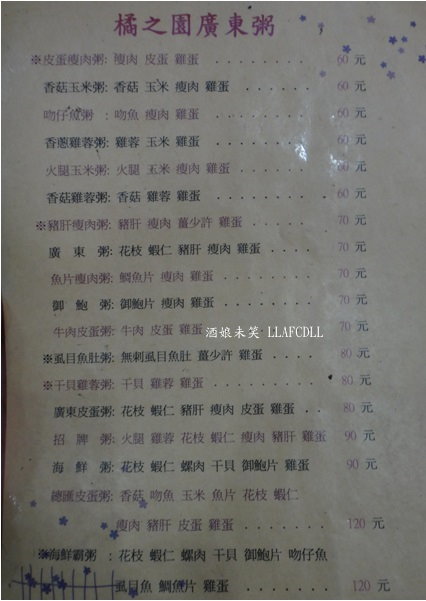 橘之園廣東粥
※皮蛋瘦肉粥: 瘦肉 皮蛋 雞蛋 . . . . . . . . . . 60 元
香菇玉米粥: 香菇 玉米 瘦肉 雞蛋 . . . . . . . 60 元
吻仔魚粥 : 吻魚 瘦肉 雞蛋 . . . . . . . . . . 60 元
香蔥雞蓉粥: 雞蓉 玉米 雞蛋 . . . . . . . . . . 60 元
火腿玉米粥: 火腿 玉米 瘦肉 雞蛋 . . . . . . . 60 元
香菇雞蓉粥: 香菇 雞蓉 雞蛋 . . . . . . . . . . 60 元
※豬肝瘦肉粥: 豬肝 瘦肉 薑少許 雞蛋 . . . . . . 70 元
廣 東 粥: 花枝 蝦仁 豬肝 瘦肉 雞蛋 . . . . 70 元
魚片瘦肉粥: 鯛魚片 瘦肉 雞蛋 . . . . . . . . . 70 元
御 鮑 粥: 御鮑片 瘦肉 雞蛋 . . . . . . . . . 70 元
牛肉皮蛋粥: 牛肉 皮蛋 雞蛋 . . . . . . . . . . 70 元
酒娘未笑 LLAFCDLL
※虱目魚肚粥: 無刺虱目魚肚 薑少許 雞蛋 . . . . . 80 元
※干貝雞蓉粥: 干貝 雞蓉 雞蛋 . . . . . . . . . . 80 元
廣東皮蛋粥: 花枝 蝦仁 豬肝 瘦肉 皮蛋 雞蛋 . . 80 元
招 牌 粥: 火腿 雞蓉 花枝 蝦仁 瘦肉 豬肝 雞蛋 90 元
海 鮮 粥: 花枝 蝦仁 螺肉 干貝 御鮑片 雞蛋 90 元
總匯皮蛋粥: 香菇 吻魚 玉米 魚片 花枝 蝦仁
瘦肉 豬肝 皮蛋 雞蛋 . . . . . . . 120 元
※海鮮霸粥 : 花枝 蝦仁 螺肉 干貝 御鮑片 吻仔魚
虱目魚 鯛魚片 雞蛋 . . . . . . . 120 元